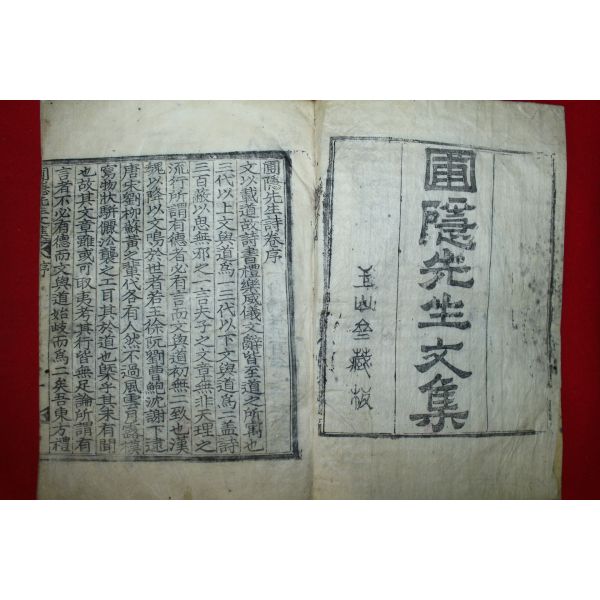 圃隱先生文集
山 藏板
圃隱先生詩卷序
文以載道故詩書禮樂威儀文辭皆至道之所寓也
三代以上文與道爲一三代以下文與道爲二蓋詩
三百蔽以思無邪之一言夫子之文章無非天理之
流行所謂有德者必有言而文與道初無二致也漢
魏以降以文鳴於世者若王徐阮劉曹鮑沈謝下逮
唐宋劉柳蘇黃之輩代各有人然不過風雲月露模
寫物狀騈儷沿襲之工耳其於道也槩乎其未有聞
也故其文章雖或可取夷考其行皆無足論所謂有
言者不必有德而文與道始歧而爲二矣吾東方禮
圃隱先生集 序